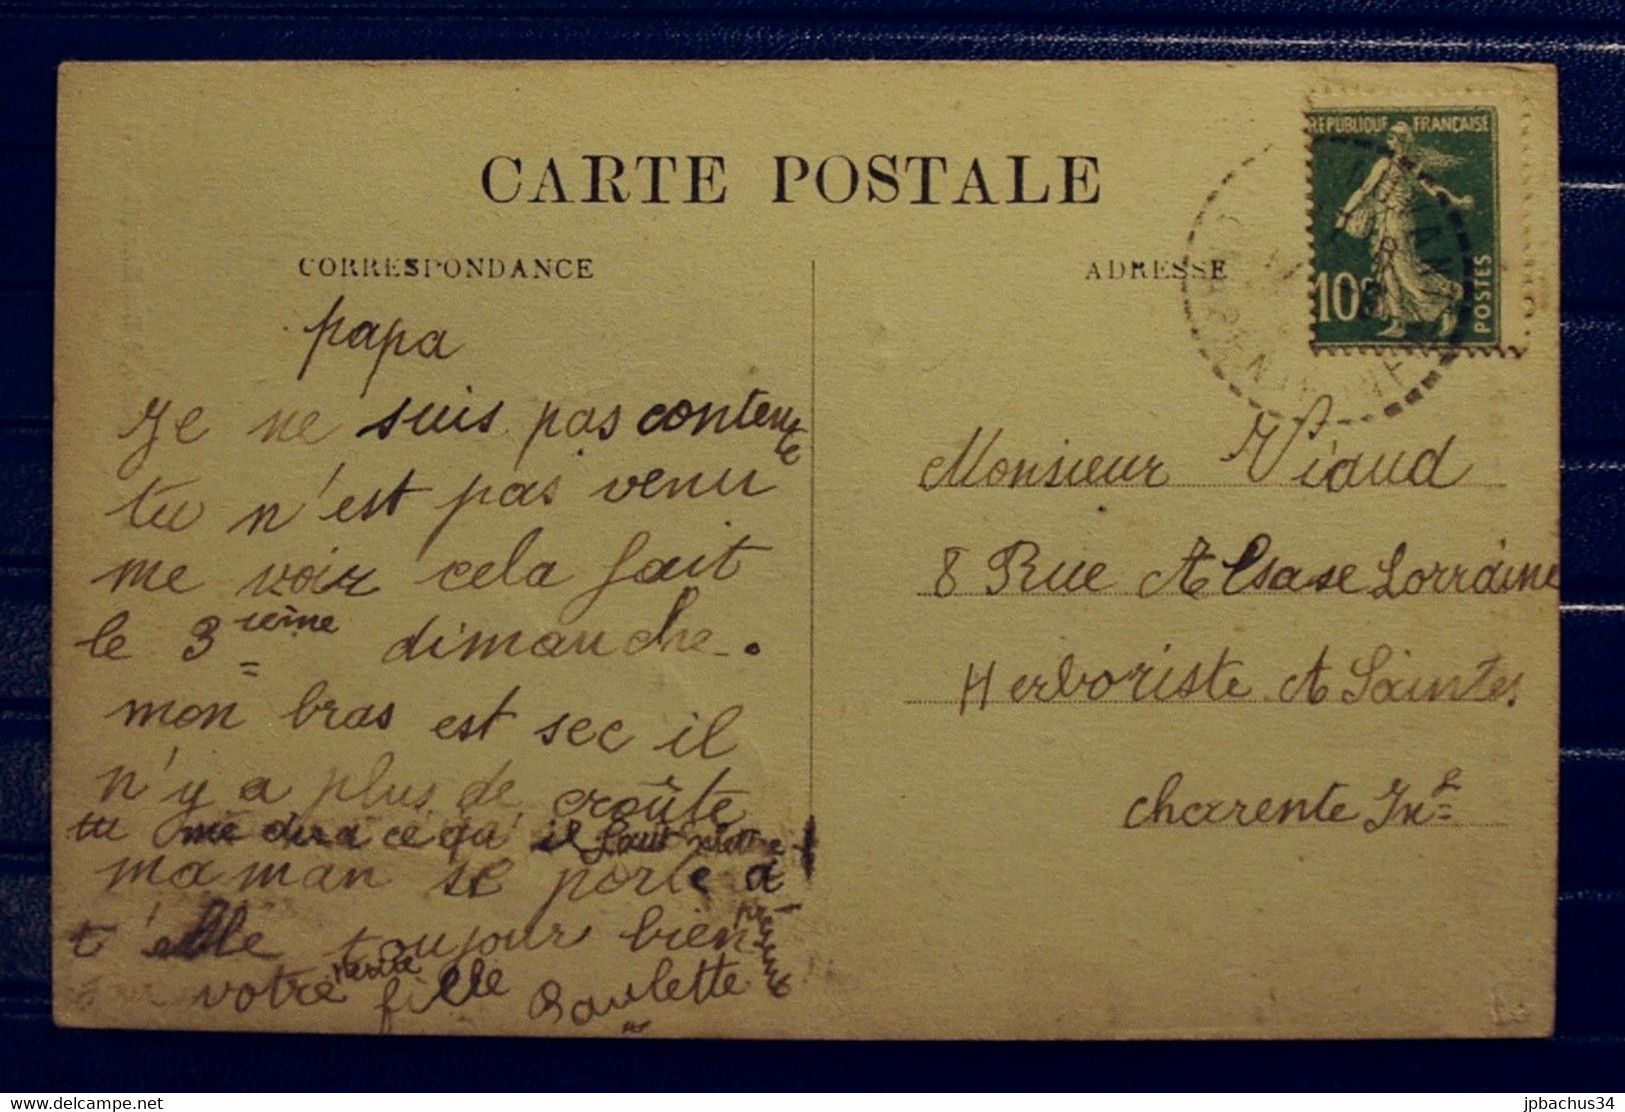 CARTE POSTALE
CORRESPONDANCE
papa
Je ne suis pas contente
tu n'est pas venu
me voir cela fait
le 3ième dimanche.
mon bras est sec il
n'y a plus de croûte
tu me dira ce qu'il faut mettre
maman se porte a
t'elle toujour bien
votre fille Paulette
ADRESSE
REPUBLIQUE FRANÇAISE
10c
POSTES
Monsieur Viaud
8 Rue Alsase Lorraine
Herboriste A Saintes
Charente Inf
delcampe.net
jpbachus34